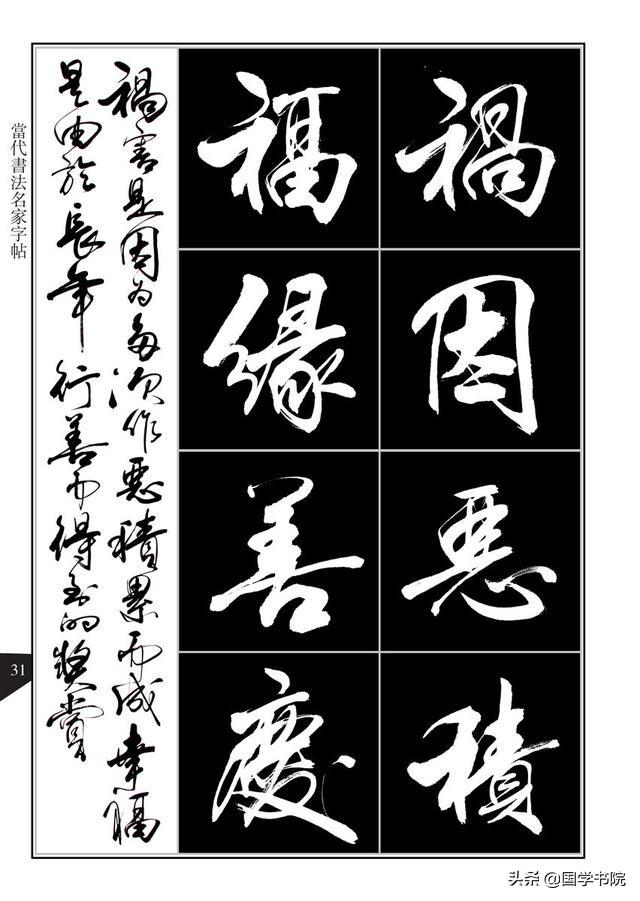 禍因惡積
福緣善慶
禍害是因为每次作惡積累而成幸福
是由於長年行善而得到的獎賞
當代書法名家字帖
31
头条 @国学书院